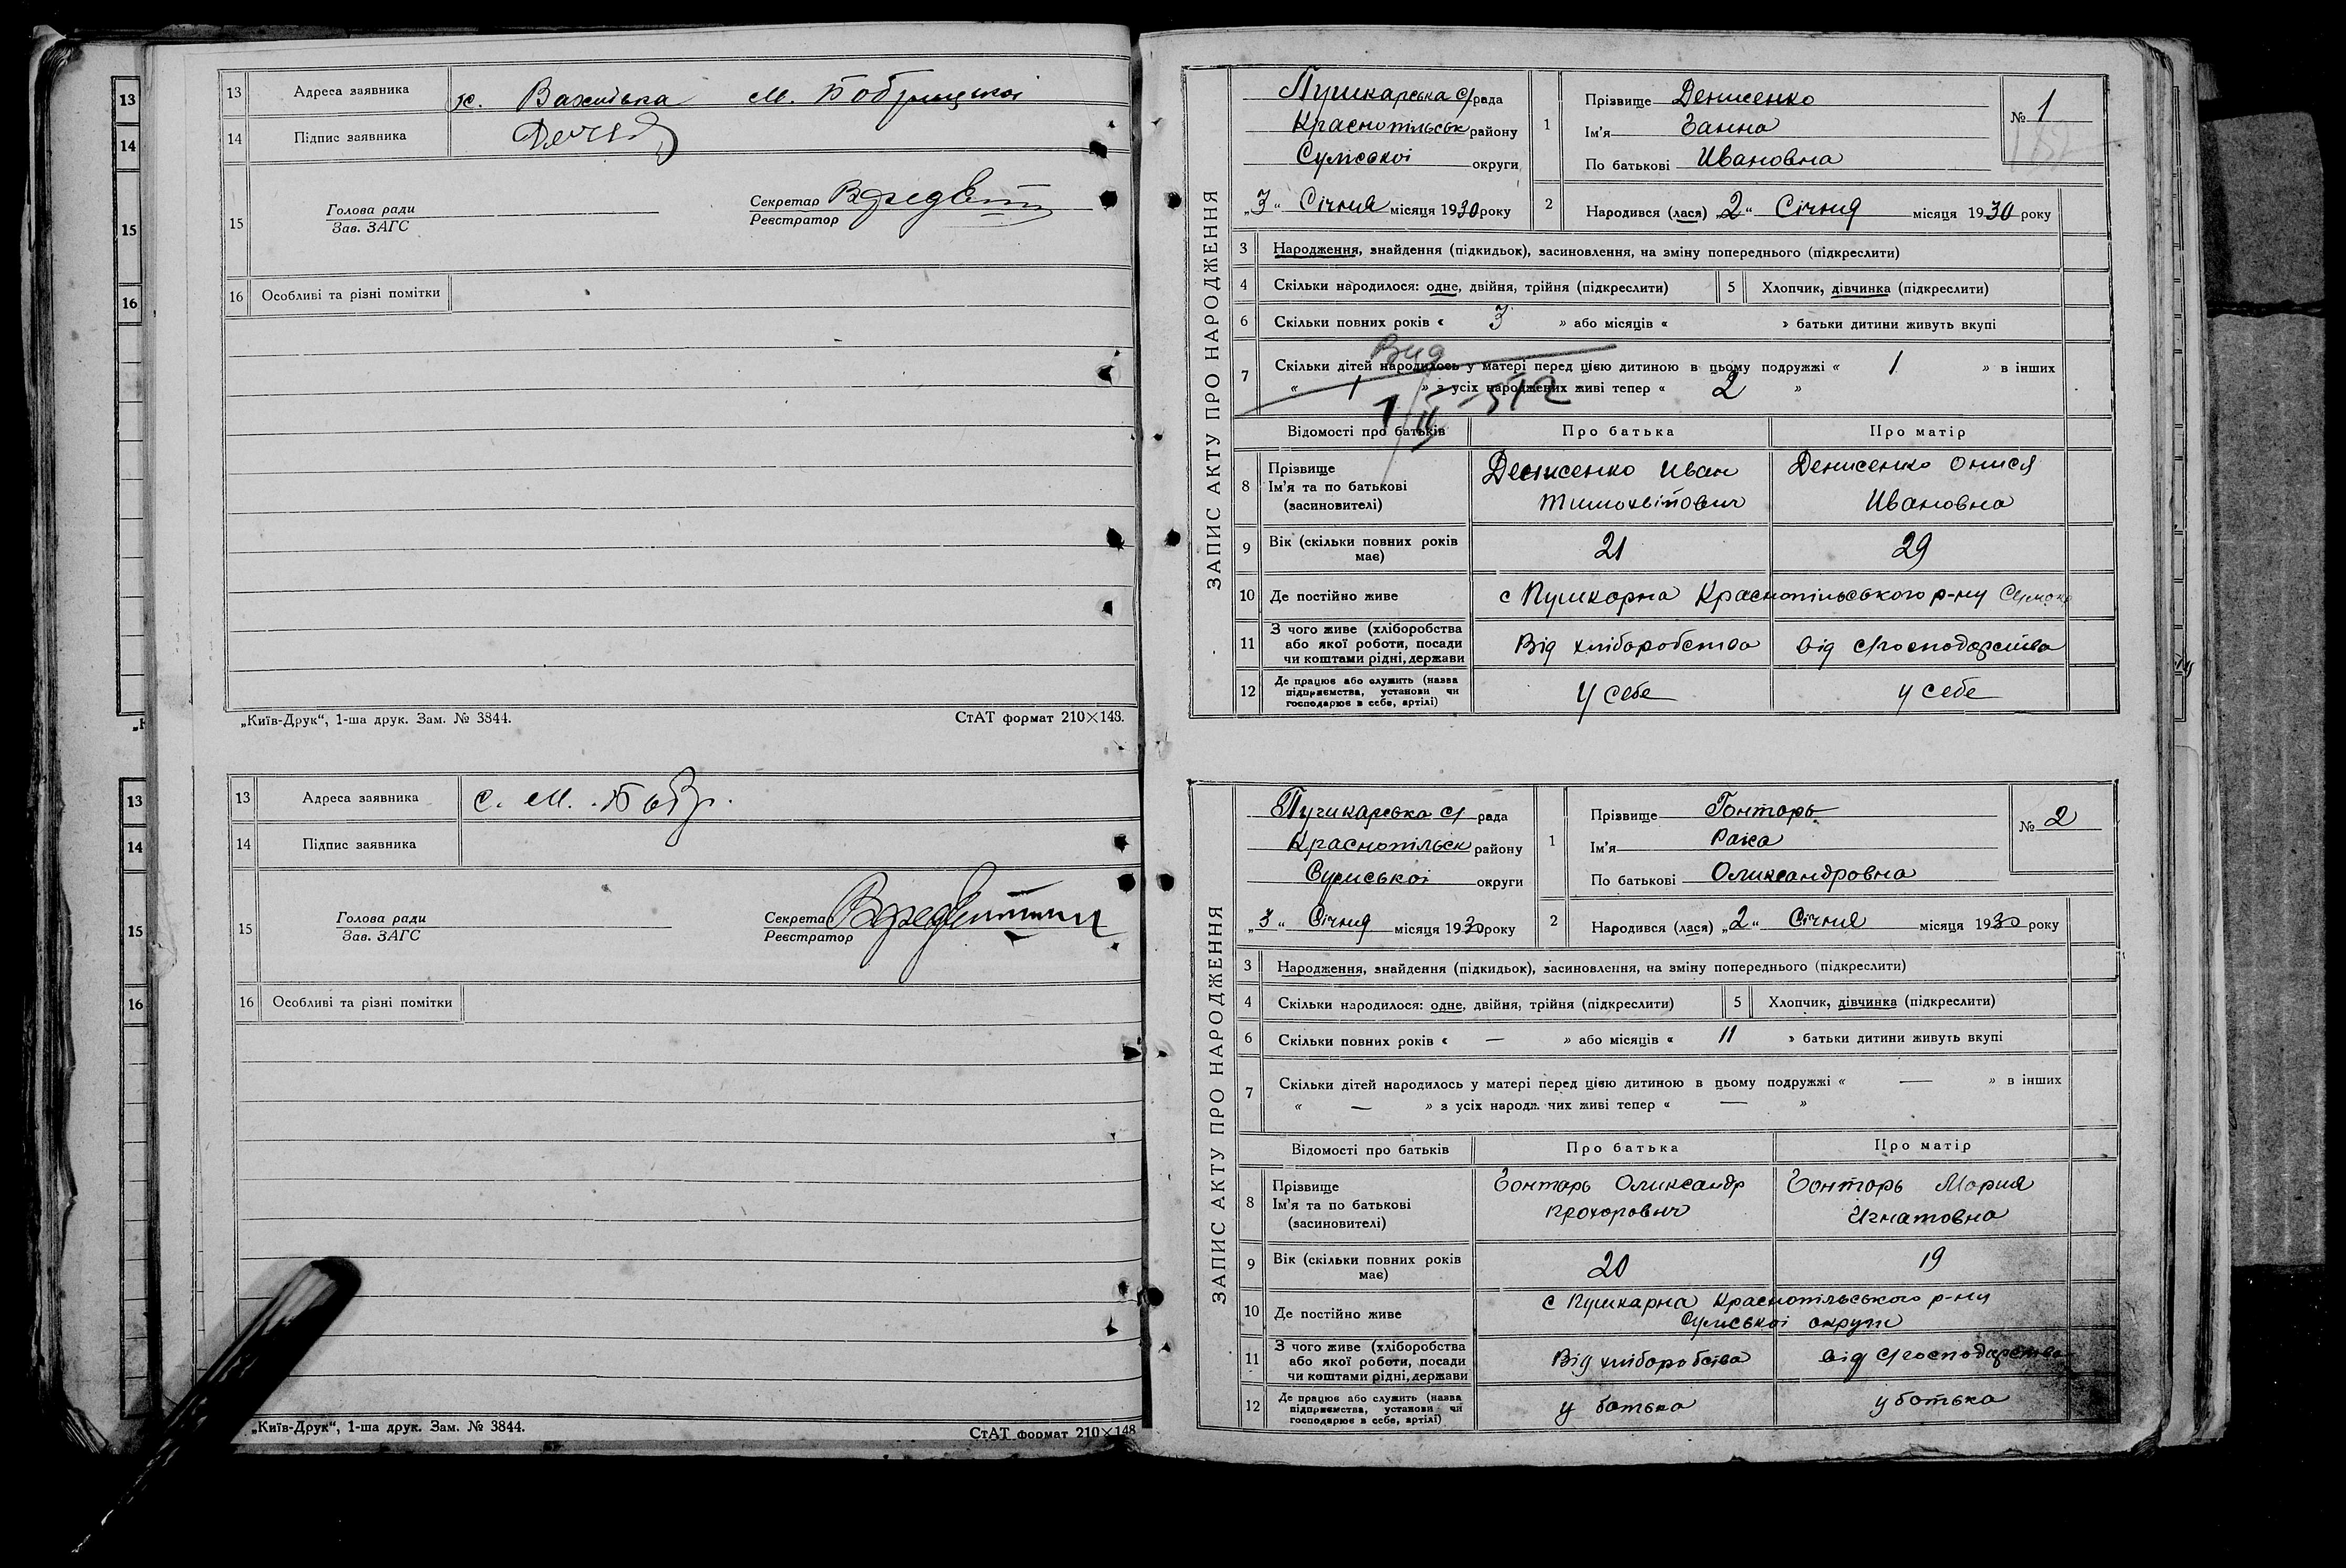 13 Адреса заявника
14 Підпис заявника
15 Голова ради
Зав. ЗАГС
Секретар
Реєстратор
16 Особливі та різні помітки
„Київ-Друк“, 1-ша друк. Зам. № 3844. СтАТ формат 210×148.
13 Адреса заявника с. М.
14 Підпис заявника
15 Голова ради
Зав. ЗАГС
Секретар
Реєстратор
16 Особливі та різні помітки
„Київ-Друк“, 1-ша друк. Зам. № 3844. СтАТ формат 210×148
ЗАПИС АКТУ ПРО НАРОДЖЕННЯ
Пушкарська с/рада
Краснопільськ району
Сумської округи
„3“ Січня місяця 1930 року
1 Прізвище Денисенко
Ім'я Ганна
По батькові Ивановна
№ 1
2 Народився (лася) „2“ Січня місяця 1930 року
3 Народження, знайдення (підкидьок), засиновлення, на зміну попереднього (підкреслити)
4 Скільки народилося: одне, двійня, трійня (підкреслити) 5 Хлопчик, дівчинка (підкреслити)
6 Скільки повних років « 3 » або місяців « » батьки дитини живуть вкупі
7 Скільки дітей народилось у матері перед цією дитиною в цьому подружжі « 1 » в інших
« 1 » з усіх народжених живі тепер « 2 »
Відомості про батьків Про батька Про матір
8 Прізвище
Ім'я та по батькові
(засиновителі)
Денисенко Иван
Тимохвійович
Денисенко Онися
Ивановна
9 Вік (скільки повних років
має) 21 29
10 Де постійно живе с Пушкарна Краснопільського р-ну
11 З чого живе (хліборобства
або якої роботи, посади
чи коштами рідні, держави
Від хліборобства від с/господарства
12 Де працює або служить (назва
підприємства, установи чи
господарює в себе, артілі)
у себе у себе
ЗАПИС АКТУ ПРО НАРОДЖЕННЯ
Пушкарська с/рада
Краснопільськ району
Сумської округи
„3“ Січня місяця 1930 року
1 Прізвище Гонтарь
Ім'я Раїса
По батькові Олександровна
№ 2
2 Народився (лася) „2“ Січня місяця 1930 року
3 Народження, знайдення (підкидьок), засиновлення, на зміну попереднього (підкреслити)
4 Скільки народилося: одне, двійня, трійня (підкреслити) 5 Хлопчик, дівчинка (підкреслити)
6 Скільки повних років « — » або місяців « 11 » батьки дитини живуть вкупі
7 Скільки дітей народилось у матері перед цією дитиною в цьому подружжі « — » в інших
« — » з усіх народж. них живі тепер « — »
Відомості про батьків Про батька Про матір
8 Прізвище
Ім'я та по батькові
(засиновителі)
Гонтарь Олександр
Прохорович
Гонтарь Мария
Игнатовна
9 Вік (скільки повних років
має) 20 19
10 Де постійно живе с Пушкарна Краснопільського р-ну
Сумської округи
11 З чого живе (хліборобства
або якої роботи, посади
чи коштами рідні, держави
Від хліборобства від с/господарства
12 Де працює або служить (назва
підприємства, установи чи
господарює в себе, артілі)
у батька у батька